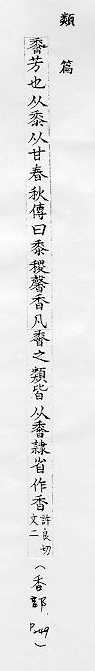 類篇
𪏽芳也从黍从甘春秋傳曰黍稷馨香凡𪏽之類皆从𪏽隸省作香許良切文二(香部 P.249)